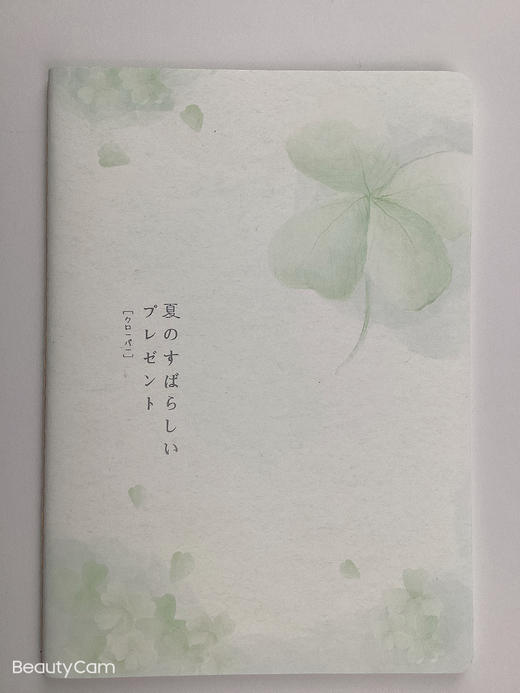 夏のすばらしい
プレゼント
[クローバー]
BeautyCam